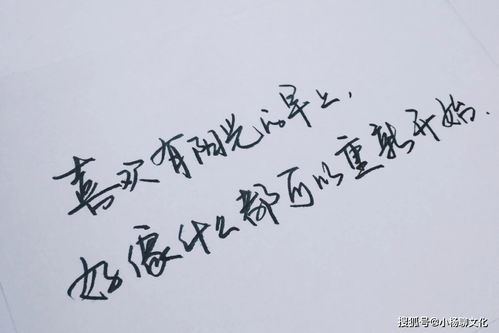 喜欢有阳光的早上，
好像什么都可以重新开始.
搜狐号@小杨聊文化